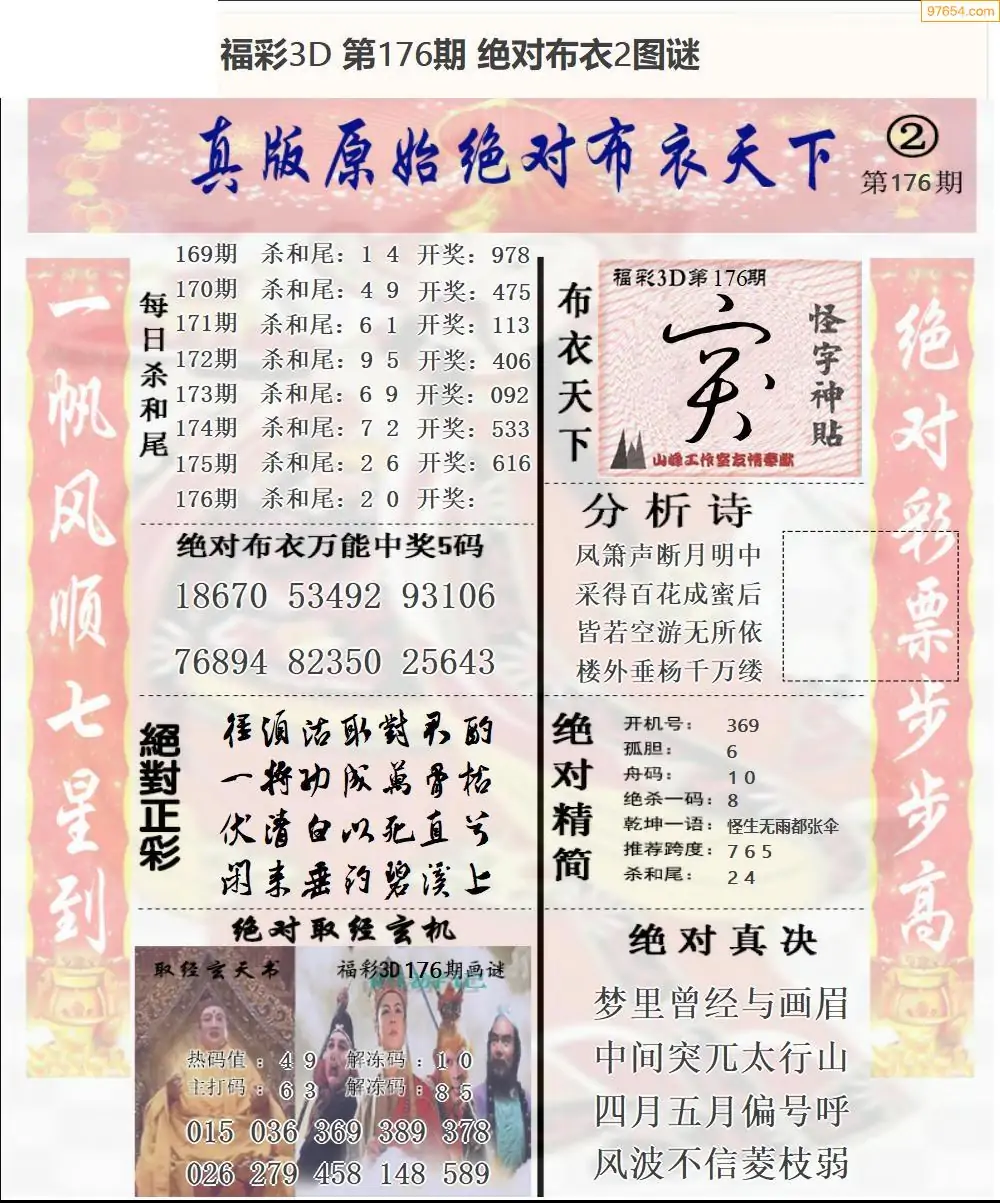 97654.com
福彩3D 第176期 绝对布衣2图谜
真版原始绝对布衣天下
②
第176期
一帆风顺七星到
每日杀和尾
169期 杀和尾：1 4 开奖：978
170期 杀和尾：4 9 开奖：475
171期 杀和尾：6 1 开奖：113
172期 杀和尾：9 5 开奖：406
173期 杀和尾：6 9 开奖：092
174期 杀和尾：7 2 开奖：533
175期 杀和尾：2 6 开奖：616
176期 杀和尾：2 0 开奖：
绝对布衣万能中奖5码
18670 53492 93106
76894 82350 25643
絕對正彩
径须沽取對君酌
一将功成萬骨枯
伏清白以死直兮
闲来垂钓碧溪上
绝对取经玄机
取经玄天书
福彩3D176期画谜
热码值：4 9 解冻码：1 0
主打码：6 3 解冻码：8 5
015 036 369 389 378
026 279 458 148 589
布衣天下
福彩3D第176期
怪字神貼
山峰工作室友情奉献
分析诗
凤箫声断月明中
采得百花成蜜后
皆若空游无所依
楼外垂杨千万缕
绝对精简
开机号：369
孤胆：6
舟码：1 0
绝杀一码：8
乾坤一语：怪生无雨都张伞
推荐跨度：7 6 5
杀和尾：2 4
绝对真决
梦里曾经与画眉
中间突兀太行山
四月五月偏号呼
风波不信菱枝弱
绝对彩票步步高